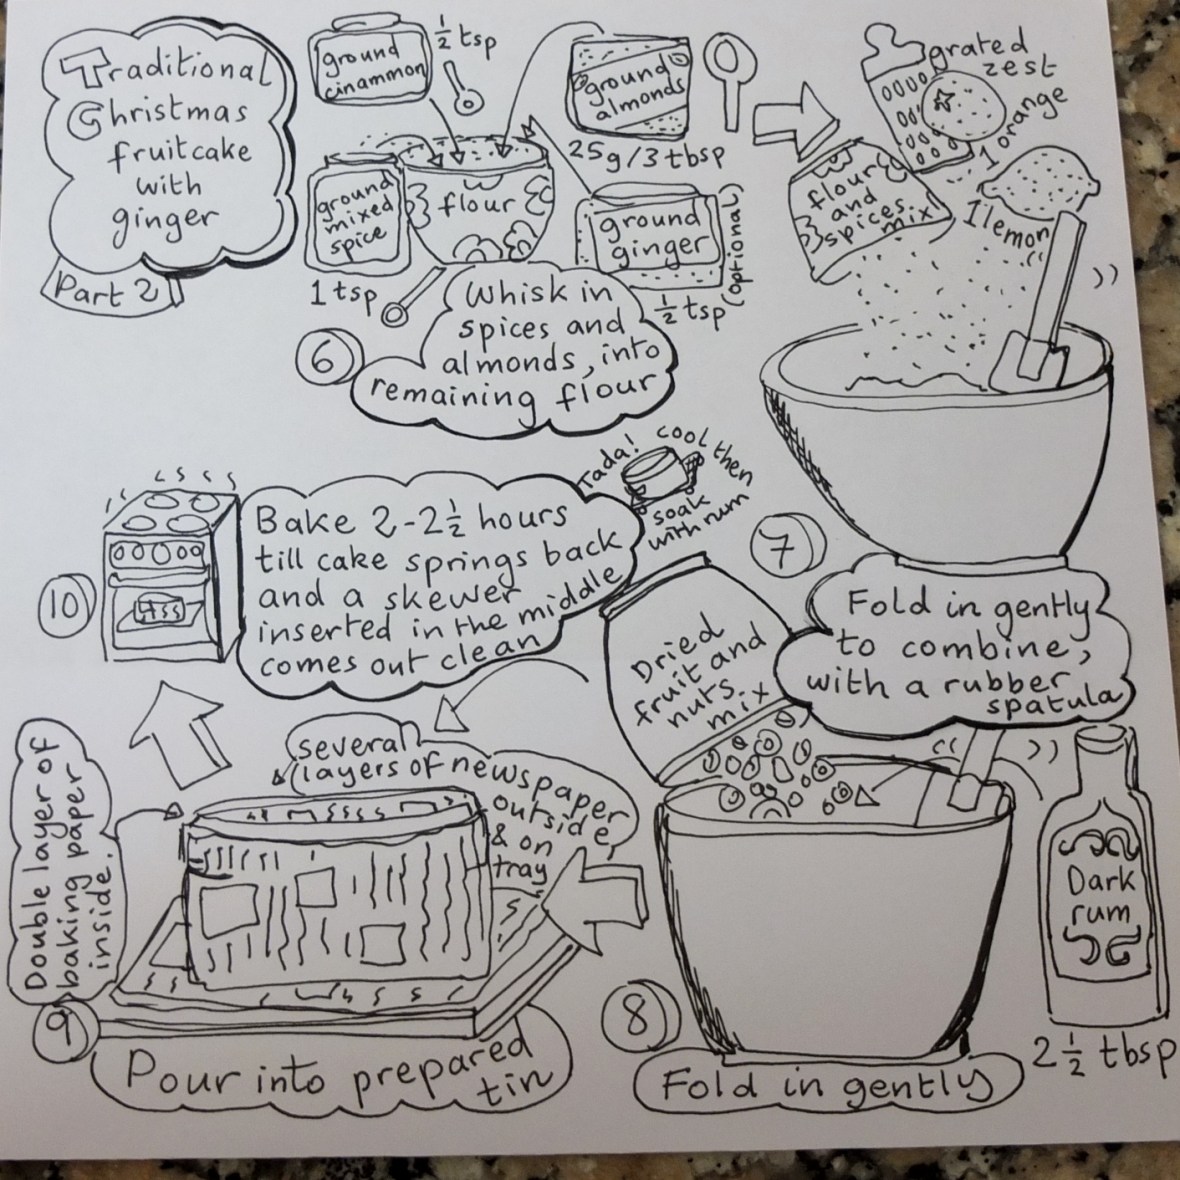 Traditional
Christmas
fruitcake
with
ginger
Part 2
ground
cinammon
½ tsp
ground
almonds
25g/3 tbsp
ground
mixed
spice
1 tsp
flour
ground
ginger
½ tsp (optional)
6
Whisk in
spices and
almonds, into
remaining flour
grated
zest
1 orange
1 lemon
flour
and
spices
mix
7
Fold in gently
to combine,
with a rubber
spatula
Dried
fruit and
nuts
mix
Dark
rum
2½ tbsp
8
Fold in gently
several
layers of newspaper
outside
& on
tray
Double layer of
baking paper
inside.
9
Pour into prepared
tin
10
Bake 2-2½ hours
till cake springs back
and a skewer
inserted in the middle
comes out clean
Tada!
cool then
soak
with rum